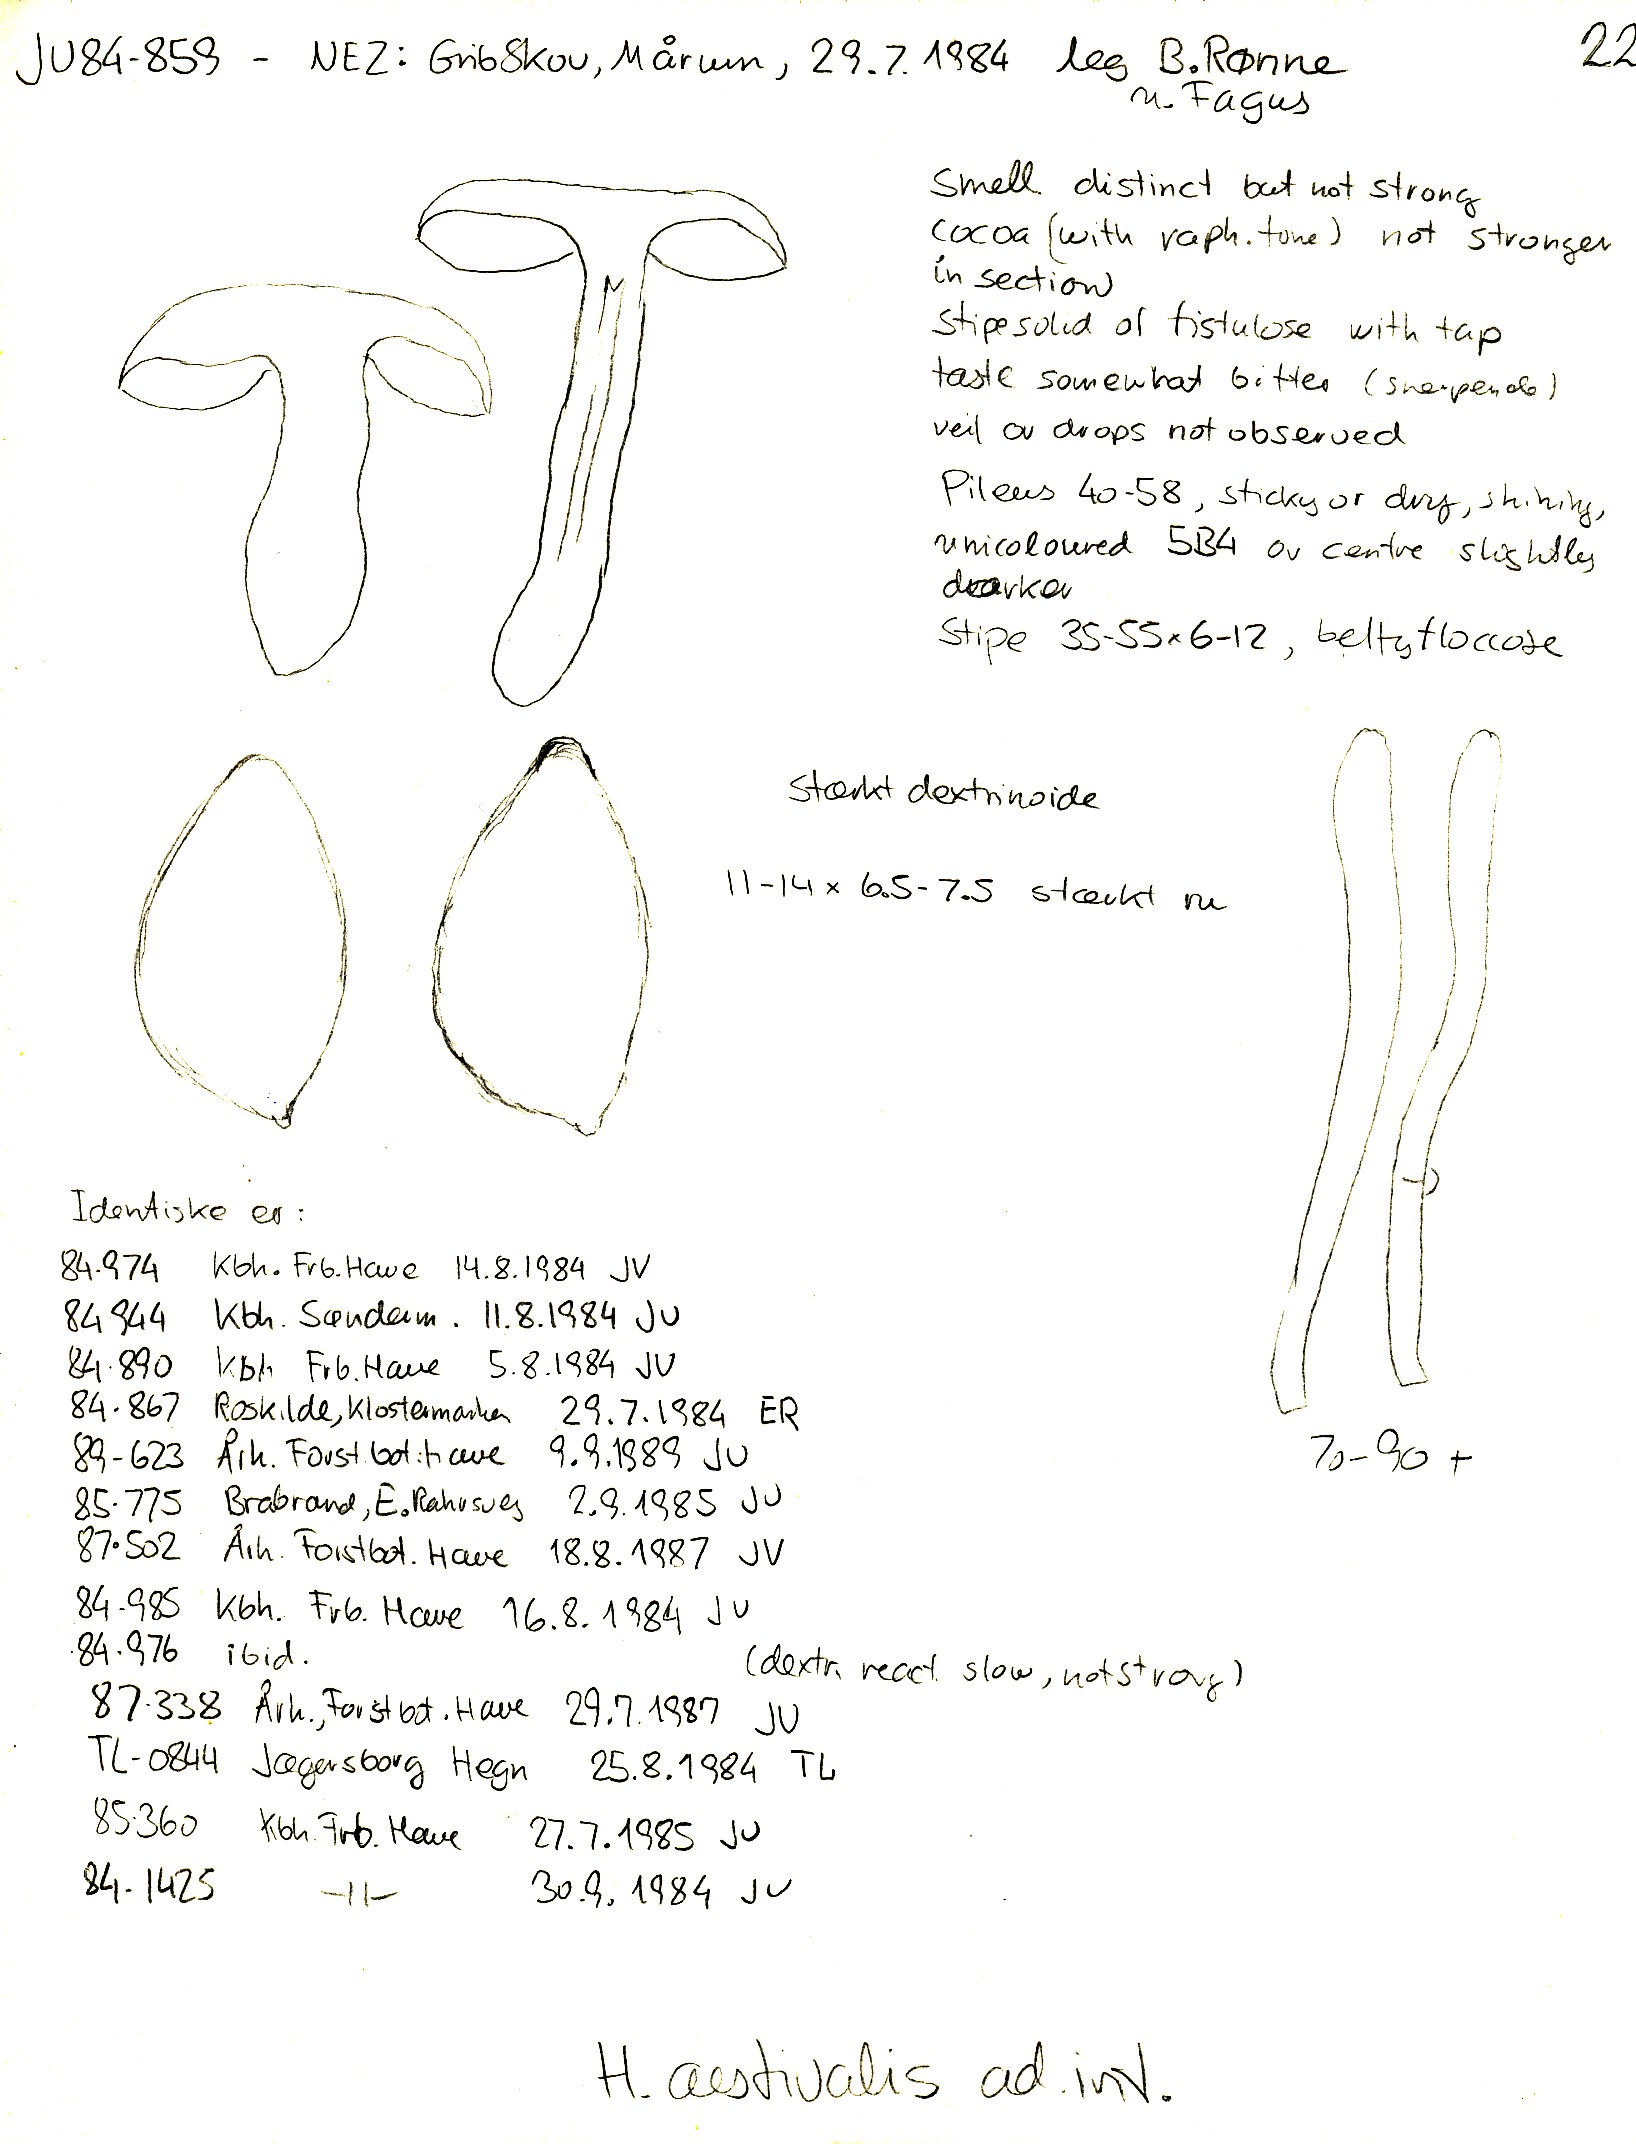 JV84-859 - NEZ: Grib Skov, Mårum, 29.7.1984 leg B.Rønne
22
u. Fagus
Smell distinct but not strong
cocoa (with raph. tone) not stronger
in section
Stipe solid of fistulose with tap
taste somewhat bitter (snerpende)
veil or drops not observed
Pileus 40-58, sticky or dry, shining,
unicoloured 5B4 or centre slightly
darker
Stipe 35-55×6-12, belty floccose
Stærkt dextrinoide
11-14 × 6.5-7.5 stærkt ru
70-90 +
Identiske er:
84.974 Kbh. Frb. Have 14.8.1984 JV
84944 Kbh. Sønderm. 11.8.1984 JV
84.890 Kbh Frb. Have 5.8.1984 JV
84.867 Roskilde, Klostermarken 29.7.1984 ER
89-623 Årh. Forstbot. have 9.9.1989 JV
85.775 Brabrand, E. Rahrsvej 2.9.1985 JV
87.502 Årh. Forstbot. Have 18.8.1987 JV
84.985 Kbh. Frb. Have 16.8.1984 JV
84.976 ibid. (dextr. react. slow, not strong)
87.338 Årh., Forstbot. Have 29.7.1987 JV
TL-0844 Jægersborg Hegn 25.8.1984 TL
85.360 Kbh. Frb. Have 27.7.1985 JV
84.1425 -11- 30.9.1984 JV
H. aestivalis ad.int.